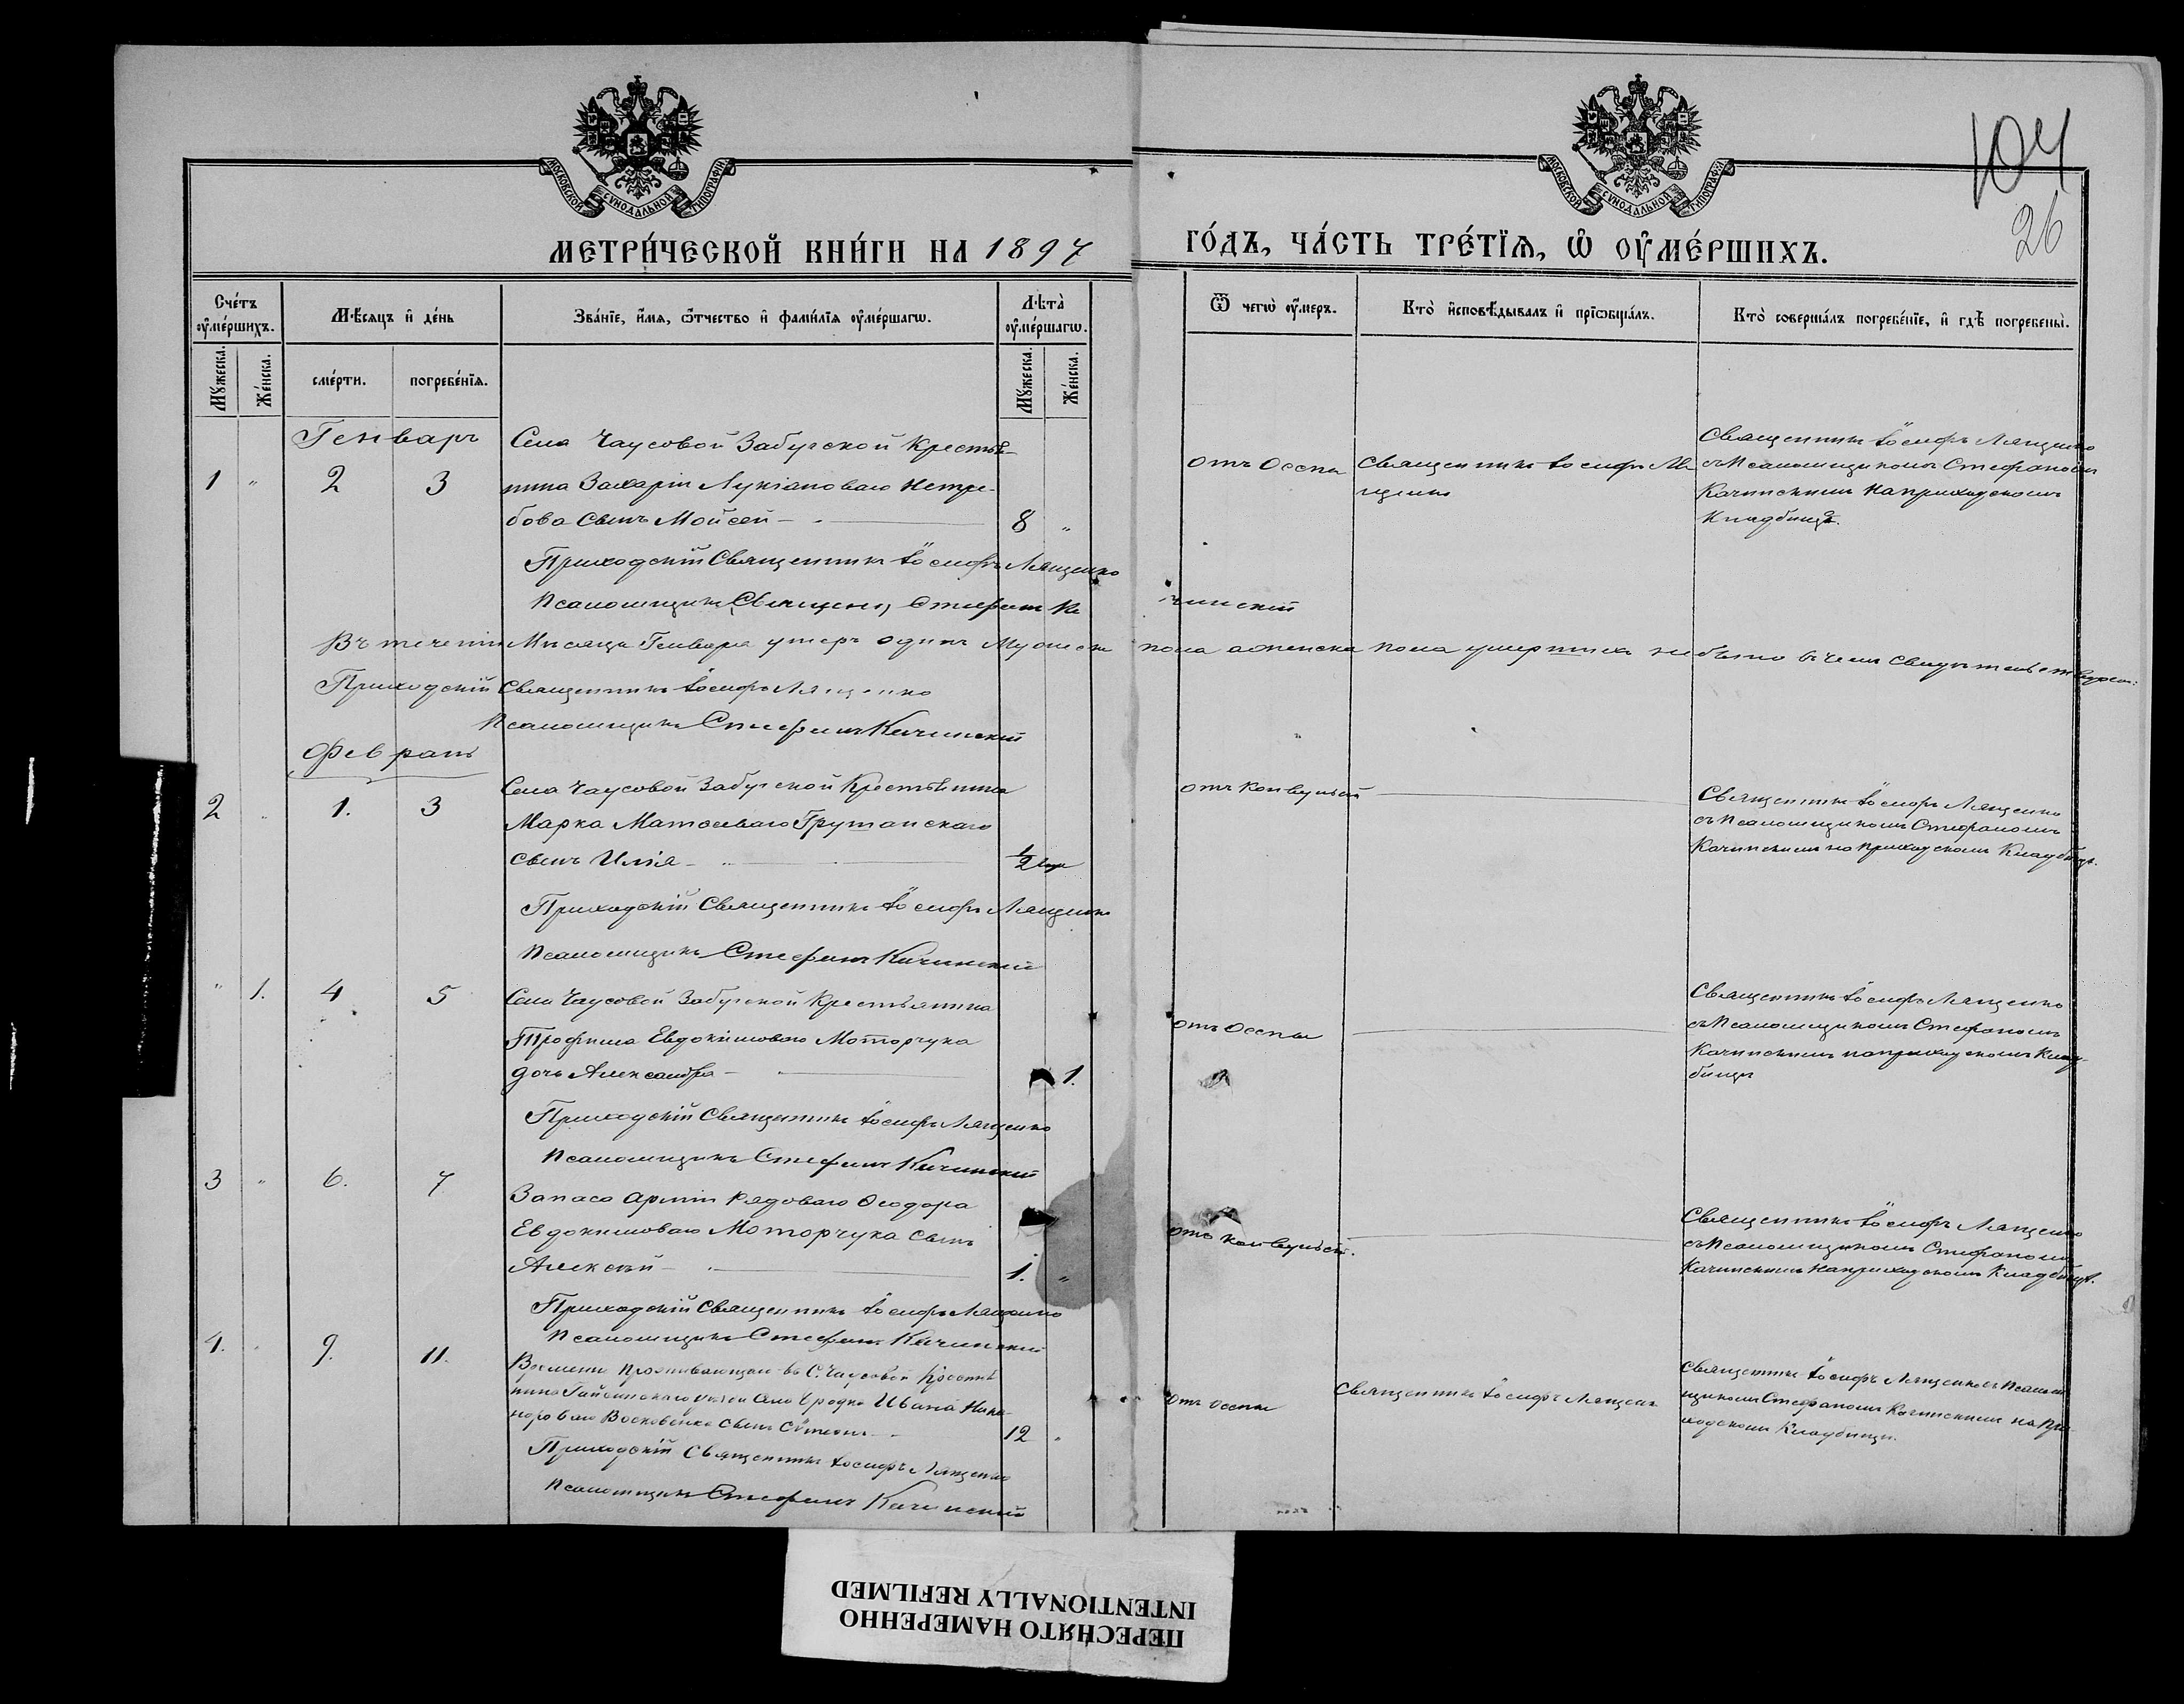 МОСКОВСКОЙ СУНОДАЛЬНОЙ ТИПОГРАФІИ
МОСКОВСКОЙ СУНОДАЛЬНОЙ ТИПОГРАФІИ
104
26
МЕТРИ́ЧЕСКОЙ КНИ́ГИ НА 1897 ГО́ДЪ, ЧА́СТЬ ТРЕ́ТІѦ, Ѡ ОУМЕ́РШИХЪ.
Сче́тъ оуме́ршихъ.
Мꙋжеска.
Же́нска.
Мѣ́сяцъ и де́нь
сме́рти.
погребе́нїѧ.
Зва́нїе, и́мѧ, ѻ҆́тчество и фами́лїѧ оуме́ршагѡ.
Лѣ́та оуме́ршагѡ.
Мꙋжеска.
Же́нска.
Ѿ чегѡ̀ оу́меръ.
Кто̀ и҆сповѣ́дывалъ и҆ прїѡбща́лъ.
Кто̀ соверша́лъ погребе́нїе, и҆ гдѣ̀ погребены̀.
Генварь
1 " 2 3
Села Чаусовой Забугской Крестья-
нина Захарія Лукіановаго Нетре-
бова Сынъ Мойсей 8 "
отъ Оспы
Священникъ Іосифъ Ля-
щенко
Священникъ Іосифъ Лященко
съ Псаломщикомъ Стефаномъ
Качинскимъ на приходскомъ
Кладбищѣ.
Приходскій Священникъ Іосифъ Лященко
Псаломщикъ Священ, Стефанъ Качинскій
Въ теченіи Мѣсяца Генваря умеръ одинъ Мужеска пола а женска пола умершихъ не было въ чемъ свидѣтельствуемъ:
Приходскій Священникъ Іосифъ Лященко
Псаломщикъ Стефанъ Качинскій
Февраль
2 " 1. 3
Села Чаусовой Забугской Крестьянина
Марка Матѳеваго Грушанскаго
сынъ Илія 1/2 года
отъ конвульсій
Священникъ Іосифъ Лященко
съ Псаломщикомъ Стефаномъ
Качинскимъ на приходскомъ Кладбищѣ.
Приходскій Священникъ Іосифъ Лященко
Псаломщикъ Стефанъ Качинскій
" 1. 4 5
Села Чаусовой Забугской Крестьянина
Трофима Евдокимоваго Моторчука
дочь Александра 1.
отъ Оспы
Священникъ Іосифъ Лященко
съ Псаломщикомъ Стефаномъ
Качинскимъ на приходскомъ Клад-
бищѣ
Приходскій Священникъ Іосифъ Лященко
Псаломщикъ Стефанъ Качинскій
3 " 6. 7
Запаса арміи рядоваго Ѳеодора
Евдокимоваго Моторчука сынъ
Алексѣй 1. "
отъ конвульсій.
Священникъ Іосифъ Лященко
съ Псаломщикомъ Стефаномъ
Качинскимъ на приходскомъ Кладбищѣ.
Приходскій Священникъ Іосифъ Лященко
Псаломщикъ Стефанъ Качинскій
4. " 9. 11.
Времени проживающаго въ С. Чаусовой Крестья
нина Гайсинскаго уѣзда Села Ивана Ника-
норового сынъ Сѵмеонъ 12 "
отъ оспы
Священникъ Іосифъ Лященк
Священникъ Іосифъ Лященко съ Псалом
щикомъ Стефаномъ Качинскимъ на при-
ходскомъ Кладбищѣ.
Приходскій Священникъ Іосифъ Лященко
Псаломщикъ Стефанъ Качинскій
ПЕРЕСНЯТО НАМЕРЕННО
INTENTIONALLY REFILMED